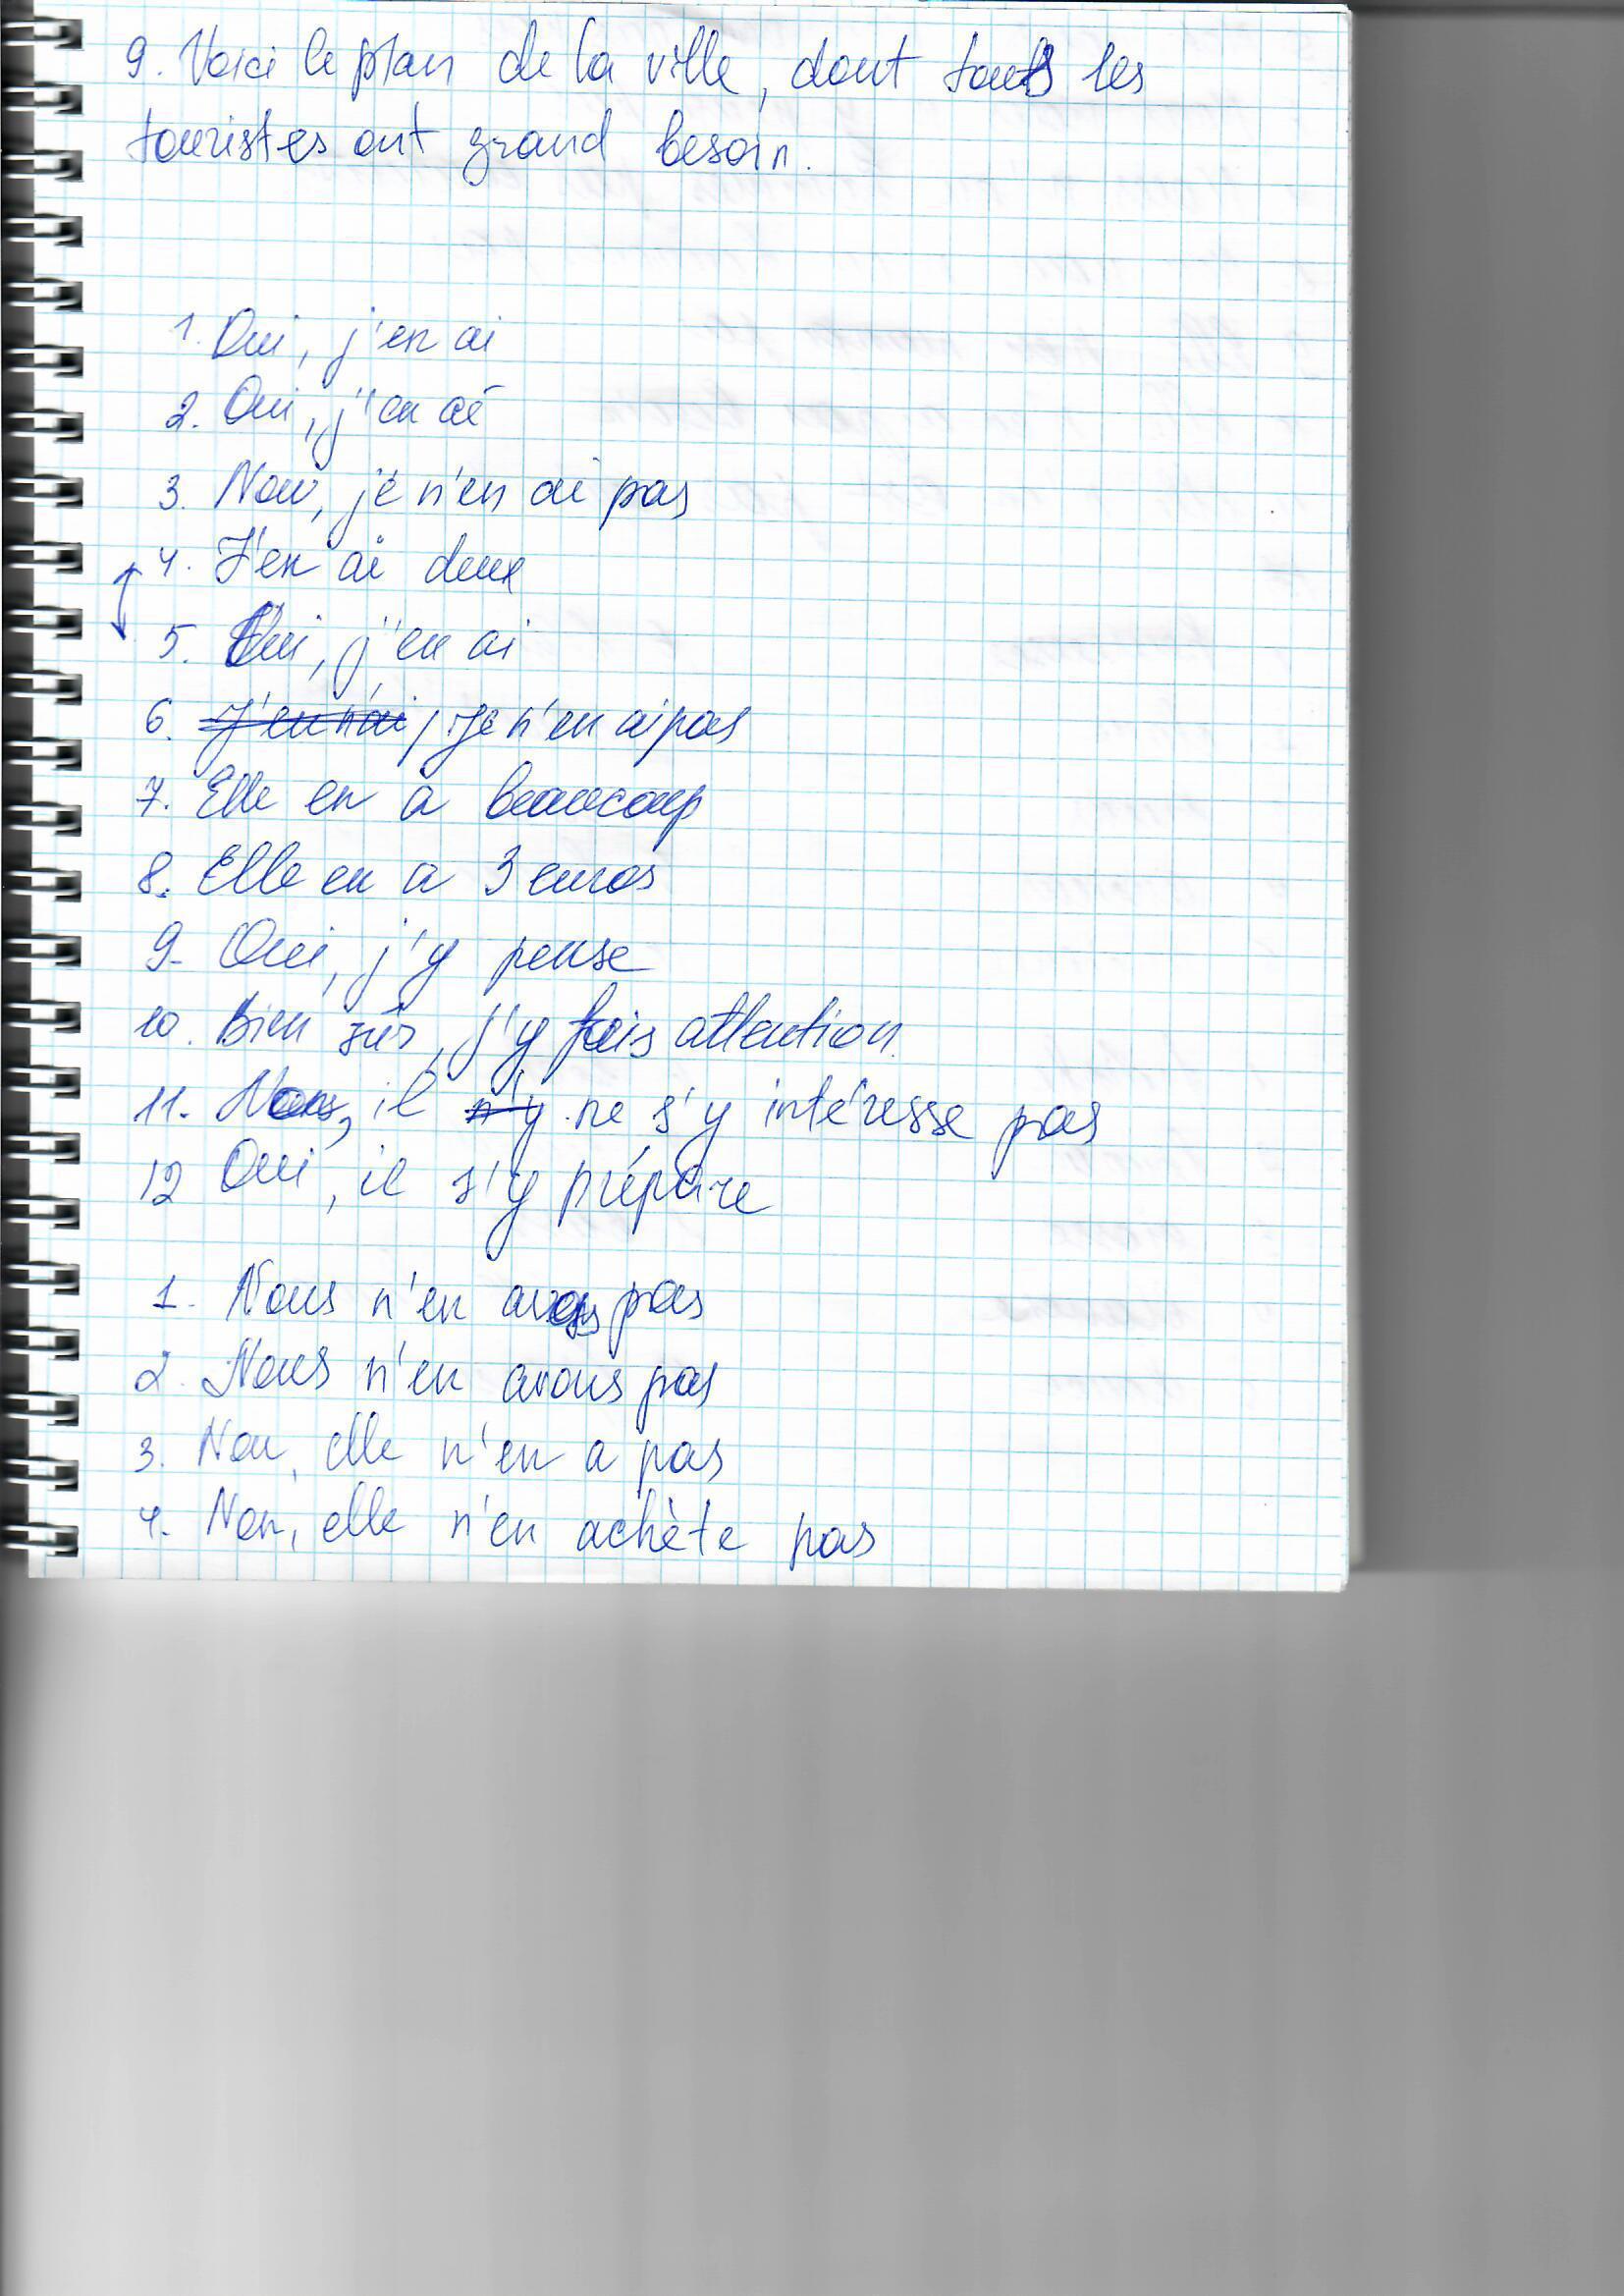 9. Voici le plan de la ville, dont tous les
touristes ont grand besoin.
1. Oui, j'en ai
2. Oui, j'en ai
3. Non, je n'en ai pas
4. J'en ai deux
5. Oui, j'en ai
6. J'en n'ai, Je n'en ai pas
7. Elle en a beaucoup
8. Elle en a 3 euros
9. Oui, j'y pense
10. Bien sûr, j'y fais attention.
11. Non, il n'y ne s'y intéresse pas
12 Oui, il s'y prépare
1. Nous n'en avons pas
2. Nous n'en avons pas
3. Non, elle n'en a pas
4. Non, elle n'en achète pas